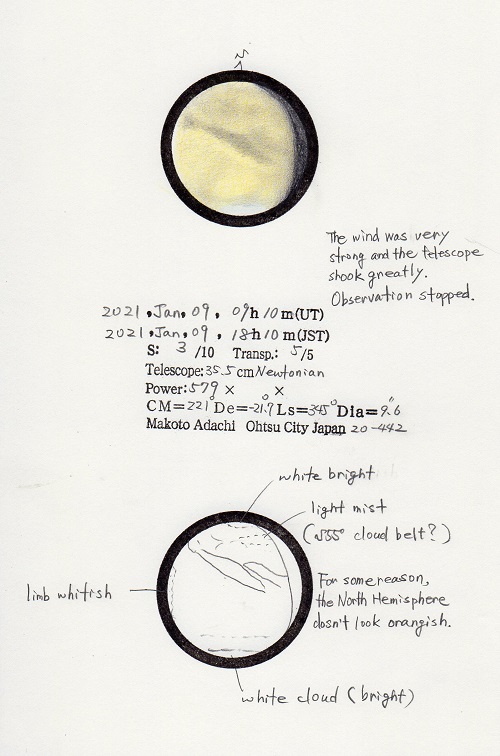 S
The wind was very
strong and the telescope
shook greatly.
Observation stopped.
2021, Jan, 09, 09h 10 m(UT)
2021, Jan, 09, 18h 10 m(JST)
S: 3 /10 Transp.: 5/5
Telescope: 35.5 cm Newtonian
Power: 579 × ×
CM=221° De=-21.7° Ls=345° Dia=9.6"
Makoto Adachi Ohtsu City Japan 20-442
white bright
light mist
(S55° cloud belt?)
limb whitish
For some reason,
the North Hemisphere
dosn't look orangish.
white cloud (bright)